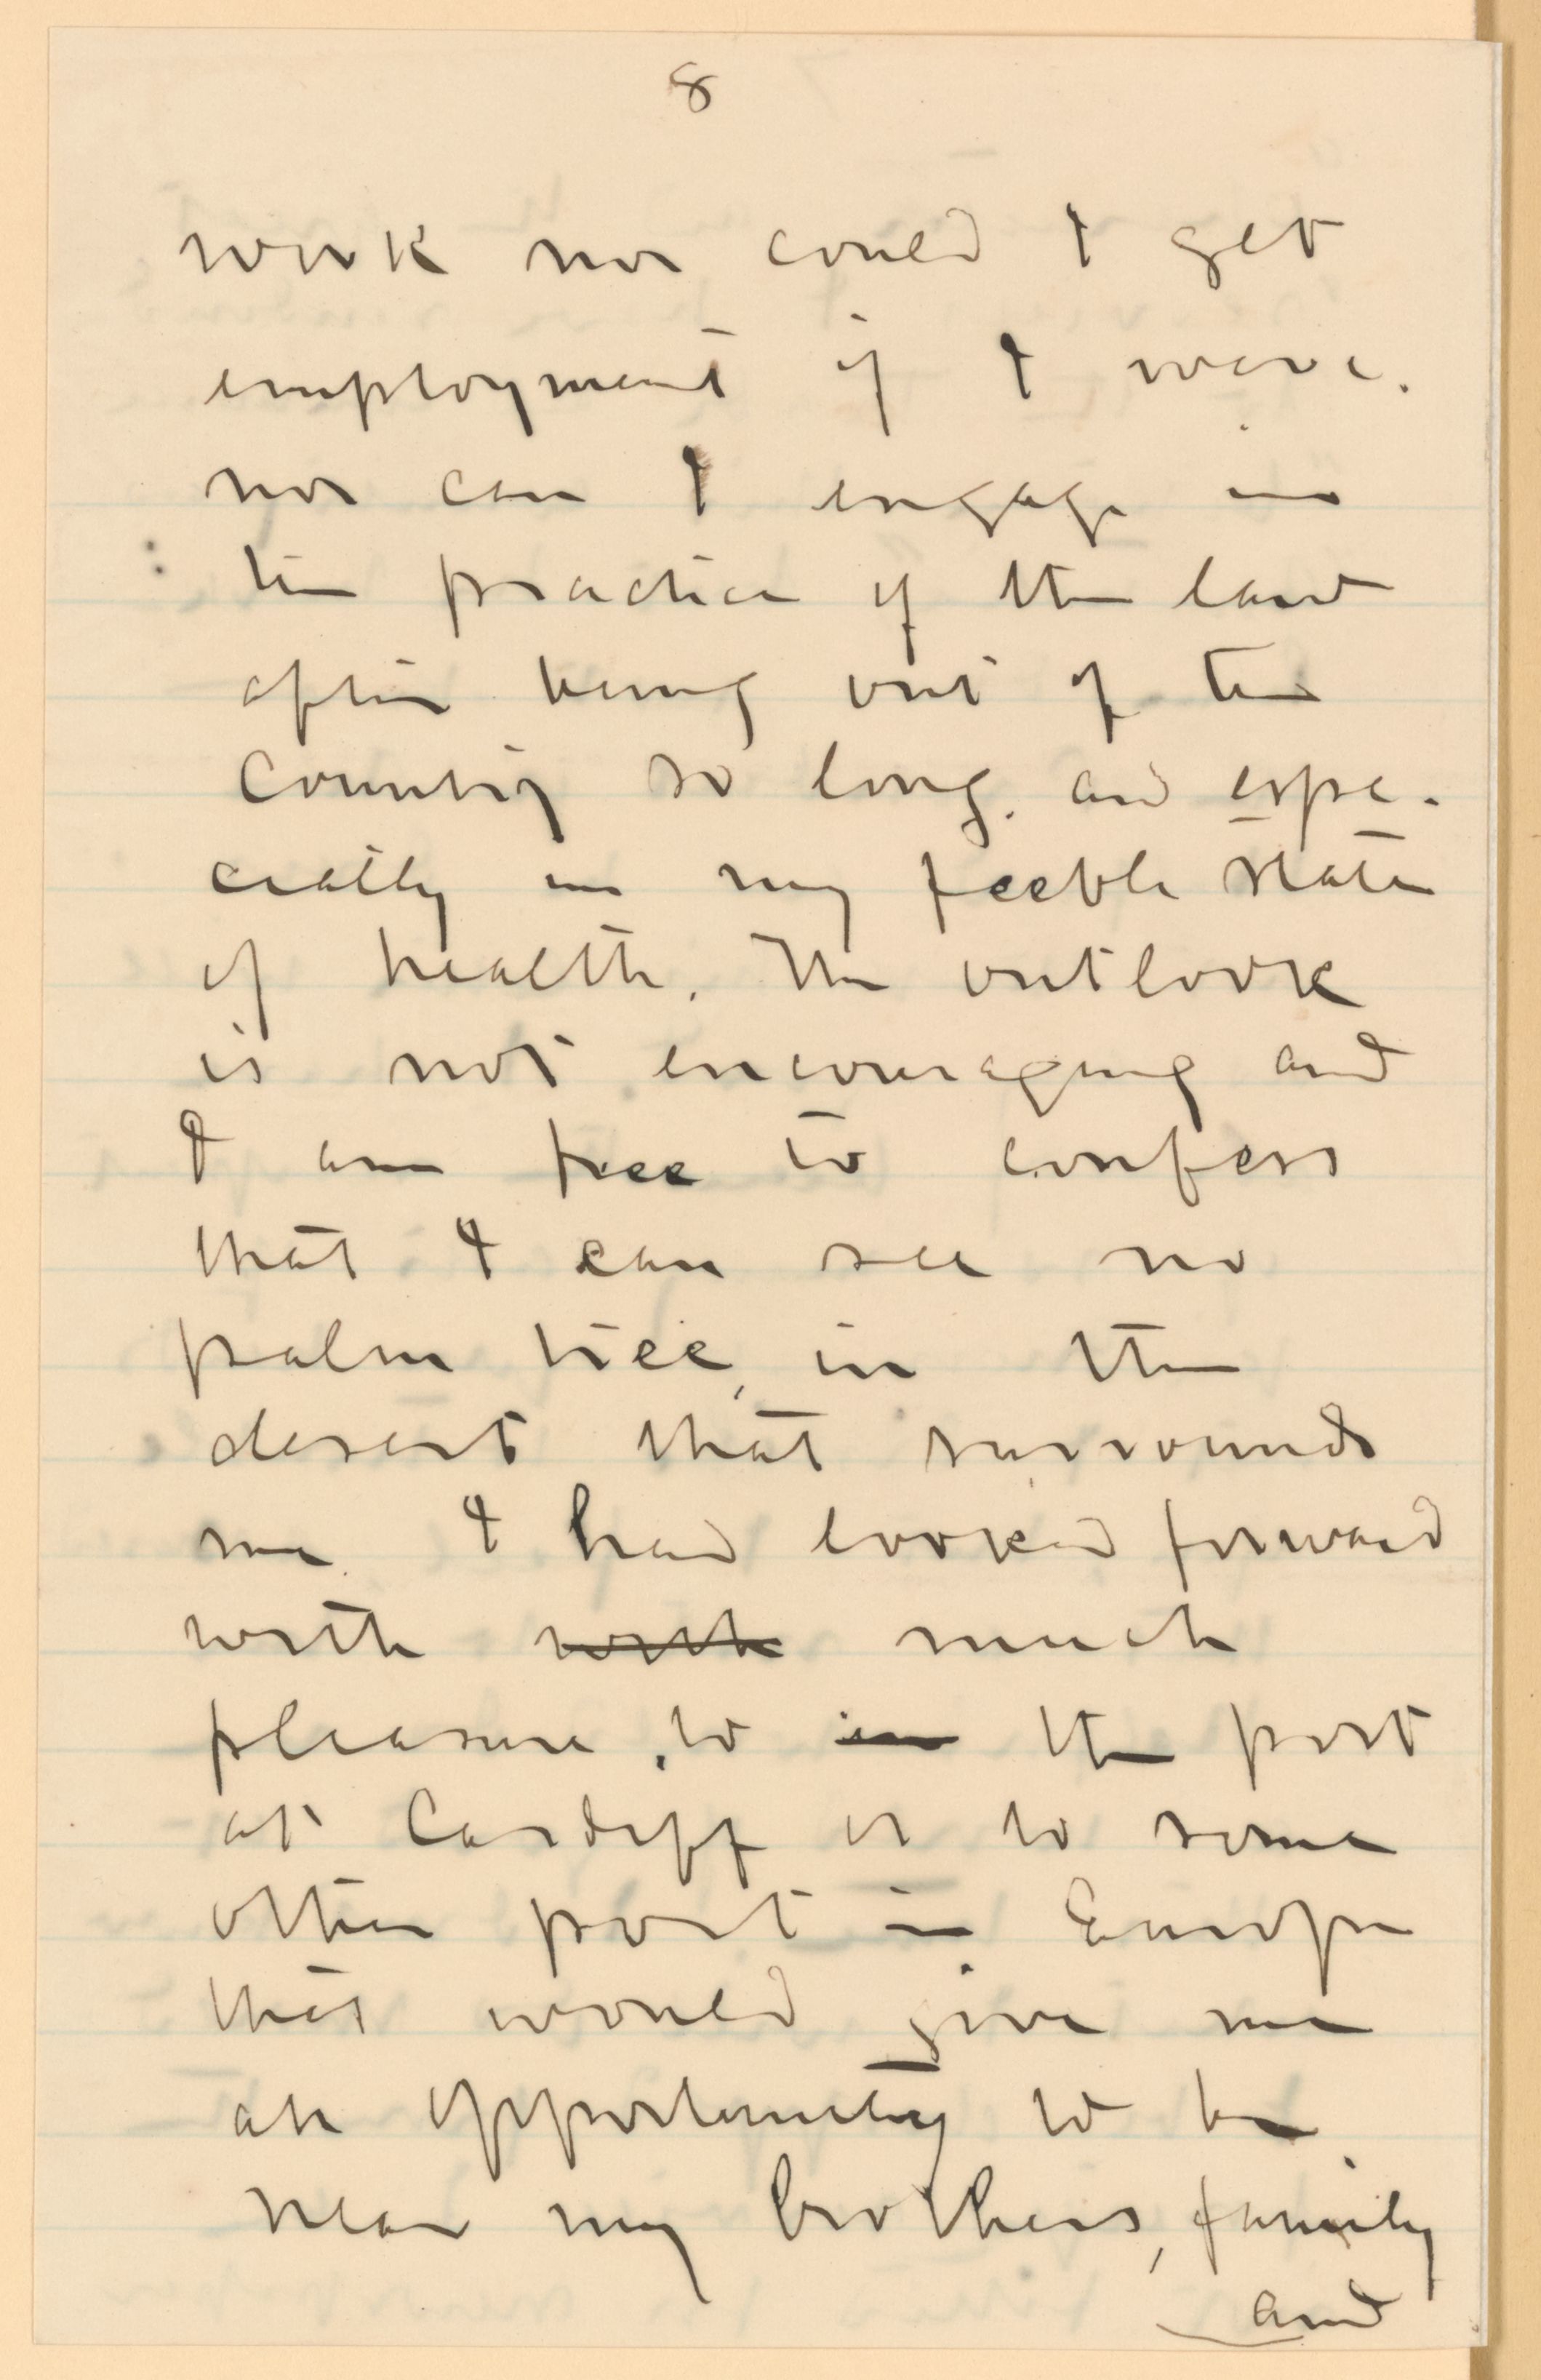 8
work nor could I get
employment if I were.
nor can I engage in
the practice of the law
after being out of the
country so long. and espe-
cially in my feeble state
of health. The outlook
is not encouraging and
I am free to confess
that I can see no
palm tree, in the
desert that surrounds
me. I had looked forward
with with much
pleasure, to in the post
at Cardiff or to some
other port in Europe
that would give me
an opportunity to be
near my brothers, family
and